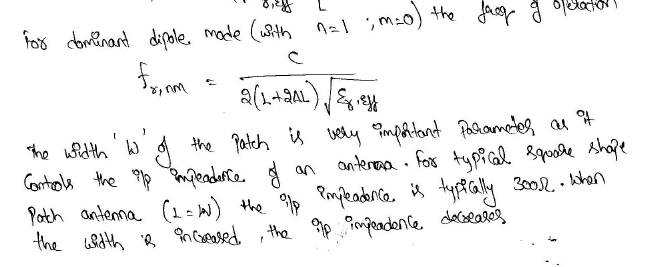 For dominant dipole mode (with n=1 ; m=0) the freq of operation
f_{r,nm} = C / 2(L+2ΔL) √ε_{r,eff}
The width 'W' of the patch is very important parameter as it
Controls the i/p impeadence of an antenna. For typical square shape
Patch antenna (L=W) the i/p impeadence is typically 300Ω. When
the width is increased, the i/p impeadence decreases